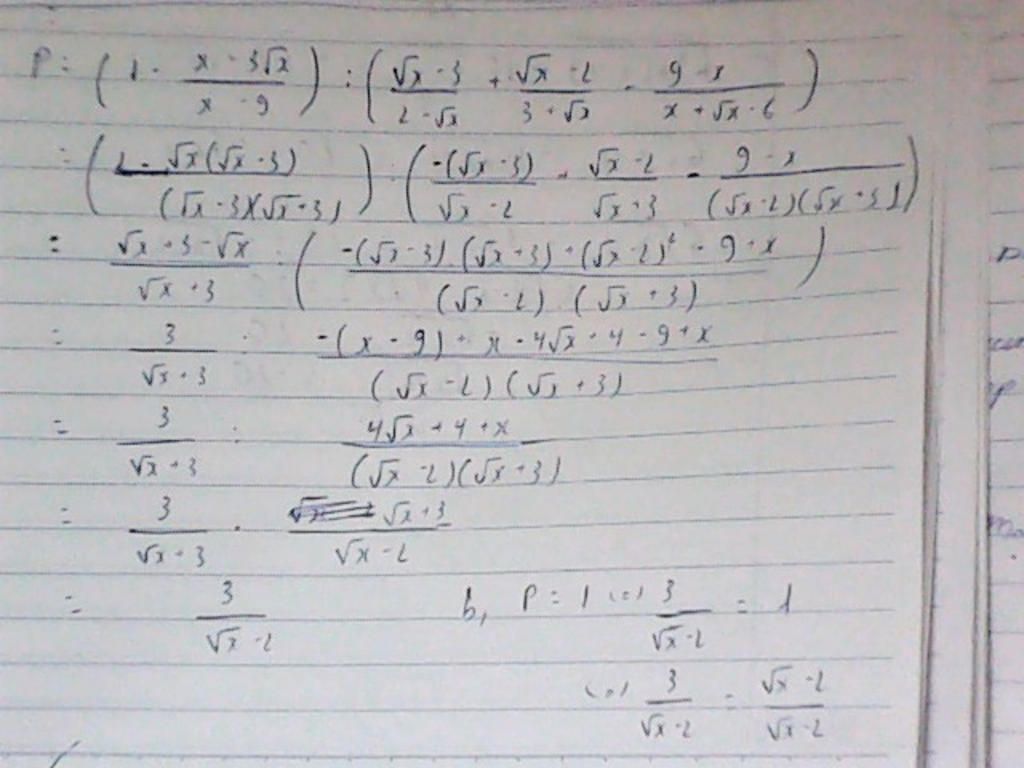 P = ( 1 - (x - 3√x)/(x - 9) ) : ( (√x - 3)/(2 - √x) + (√x - 2)/(3 + √x) - (9 - x)/(x + √x - 6) )
= ( 1 - √x(√x - 3)/((√x - 3)(√x + 3)) ) : ( -(√x - 3)/(√x - 2) + (√x - 2)/(√x + 3) - (9 - x)/((√x - 2)(√x + 3)) )
= (√x + 3 - √x)/(√x + 3) : ( (-(√x - 3)(√x + 3) + (√x - 2)² - 9 + x)/((√x - 2)(√x + 3)) )
= 3/(√x + 3) : (-(x - 9) + x - 4√x + 4 - 9 + x)/((√x - 2)(√x + 3))
= 3/(√x + 3) : (4√x + 4 + x)/((√x - 2)(√x + 3))
= 3/(√x + 3) . (√x + 3)/(√x - 2)
= 3/(√x - 2)
b, P = 1 <=> 3/(√x - 2) = 1
<=> 3/(√x - 2) = (√x - 2)/(√x - 2)